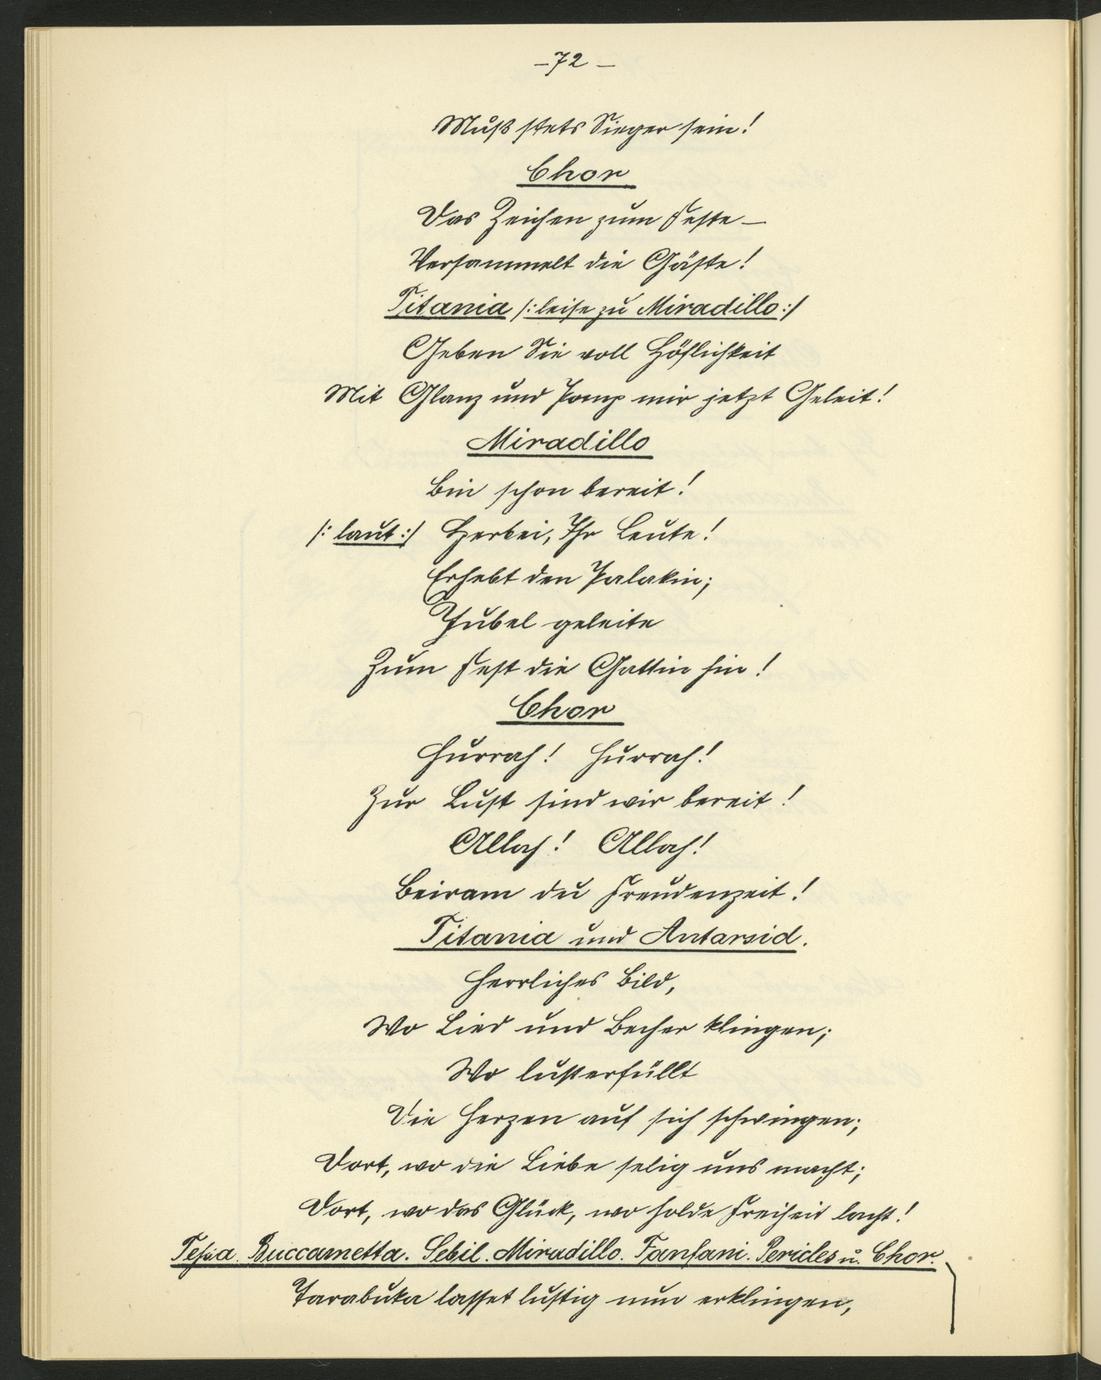 – 72 –
Muß stets Sieger sein!
Chor
Das Zeichen zum Feste –
Versammelt die Gäste!
Titania /: leise zu Miradillo :/
Geben Sie voll Höflichkeit
Mit Glanz und Pomp mir jetzt Geleit!
Miradillo
Bin schon bereit!
/: laut :/ Herbei, Ihr Leute!
Erhebt den Palakin;
Jubel geleite
Zum Fest die Gattin hin!
Chor
Hurrah! Hurrah!
Zur Lust sind wir bereit!
Allah! Allah!
Beiram du Freudenzeit!
Titania und Antarsid.
Herrliches Bild,
Wo Lied und Becher klingen;
Wo lusterfüllt
Die Herzen auf sich schwingen;
Dort, wo die Liebe selig uns macht;
Dort, wo das Glück, wo holde Freiheit lacht!
Buccametta. Sebil. Miradillo. Fanfani. Pericles u. Chor.
Tarabuka lasset lustig nun erklingen,